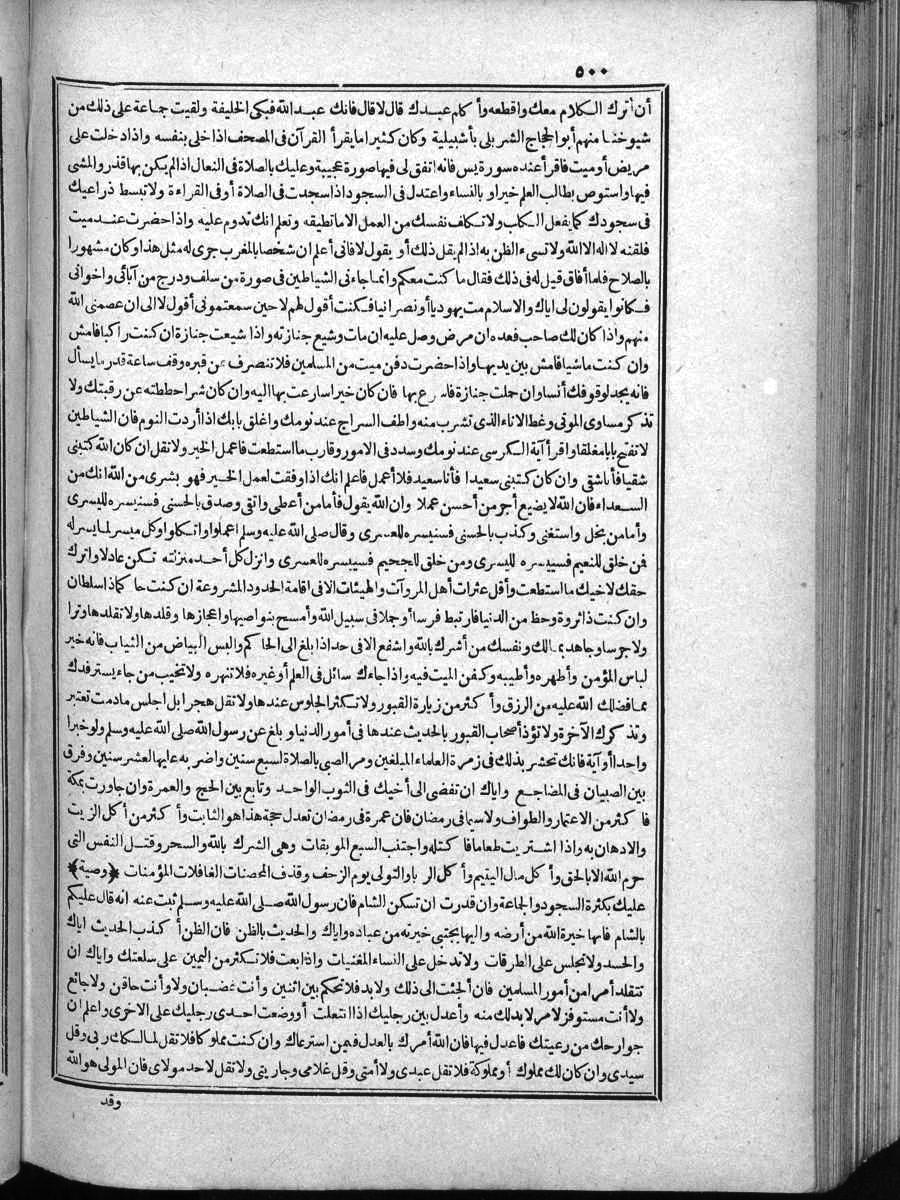 ٥٠٠
أن أترك الكلام معك وأقطعه وأكلم عبدك قال لا قال فانك عبد الله فبكى الخليفة ولقيت جماعة على ذلك من
شيوخنا منهم أبو الحجاج الشربلي بأشبيلية وكان كثيرا ما يقرأ القرآن فى المصحف اذا خلى بنفسه واذا دخلت على
مريض أو ميت فاقرأ عنده سورة يس فانه اتفق لى فيها صورة عجيبة وعليك بالصلاة فى النعال اذا لم يكن بها قذر والمشى
فيها واستوص بطالب العلم خيرا وبالنساء واعتدل فى السجود اذا سجدت فى الصلاة أو فى القراءة ولا تبسط ذراعيك
فى سجودك كما يفعل الكلب ولا تكلف نفسك من العمل الا ما تطيقه وتعلم انك تدوم عليه واذا حضرت عند ميت
فلقنه لا اله الا الله ولا تسىء الظن به اذا لم يقل ذلك أو يقول لا فانى أعلم ان شخصا بالمغرب جرى له مثل هذا وكان مشهورا
بالصلاح فلما أفاق قيل له فى ذلك فقال ما كنت معكم وانما جاءنى الشياطين فى صورة من سلف ودرج من آبائى واخوانى
فكانوا يقولون لى اياك والاسلام مت يهوديا أو نصرانيا فكنت أقول لهم لا حين سمعتمونى أقول لا الى ان عصمنى الله
منهم واذا كان لك صاحب فعده ان مرض وصل عليه ان مات وشيع جنازته واذا شيعت جنازة ان كنت راكبا فامش
وان كنت ماشيا فامش بين يديها واذا حضرت دفن ميت من المسلمين فلا تنصرف عن قبره وقف ساعة قدر ما يسأل
فانه يجد لوقوفك أنسا وان حملت جنازة فاسرع بها فان كان خيرا سارعت بها اليه وان كان شرا حططته عن رقبتك ولا
تذكر مساوى الموتى وغط الاناء الذى تشرب منه واطف السراج عند نومك واغلق بابك اذا أردت النوم فان الشياطين
لا تفتح بابا مغلقا واقرأ آية الكرسى عند نومك وسدد فى الامور وقارب ما استطعت فاعمل الخير ولا تقل ان كان الله كتبنى
شقيا فأنا شقى وان كان كتبنى سعيدا فأنا سعيد فلا أعمل فاعلم انك اذا وفقت لعمل الخير فهو بشرى من الله انك من
السعداء فان الله لا يضيع أجر من أحسن عملا وان الله يقول فأما من أعطى واتقى وصدق بالحسنى فسنيسره لليسرى
وأما من بخل واستغنى وكذب بالحسنى فسنيسره للعسرى وقال صلى الله عليه وسلم اعملوا واتكلوا وكل ميسر لما يسر له
فمن خلق للنعيم فسييسره لليسرى ومن خلق للجحيم فسييسره للعسرى وانزل كل أحد منزلته تكن عادلا واترك
حقك لاخيك ما استطعت وأقل عثرات أهل المروآت والهيئات الا فى اقامة الحدود المشروعة ان كنت حاكما ذا سلطان
وان كنت ذا ثروة وحظ من الدنيا فارتبط فرسا أو جملا فى سبيل الله وأمسح بنواصيها واعجازها وقلدها ولا تقلدها وترا
ولا جرسا وجاهد بمالك ونفسك من أشرك بالله واشفع الا فى حد اذا بلغ الى الحاكم والبس البياض من الثياب فانه خير
لباس المؤمن وأطهره وأطيبه وكفن الميت فيه واذا جاءك سائل فى العلم أو غيره فلا تنهره ولا تخيب من جاء يسترفدك
مما فضلك الله عليه من الرزق وأكثر من زيارة القبور ولا تكثر الجلوس عندها ولا تقل هجرا بل اجلس مادمت تعتبر
وتذكرك الآخرة ولا تؤذ أصحاب القبور بالحديث عندها فى أمور الدنيا وبلغ عن رسول الله صلى الله عليه وسلم ولو خبرا
واحدا أو آية فانك تحشر بذلك فى زمرة العلماء المبلغين ومر الصبى بالصلاة لسبع سنين واضربه عليها لعشر سنين وفرق
بين الصبيان فى المضاجع واياك ان تفضى الى أخيك فى الثوب الواحد وتابع بين الحج والعمرة وان جاورت بمكة
فاكثر من الاعتمار والطواف ولا سيما فى رمضان فان عمرة فى رمضان تعدل حجة هذا هو الثابت وأكثر من أكل الزيت
والادهان به واذا اشتريت طعاما فاكتله واجتنب السبع الموبقات وهى الشرك بالله والسحر وقتل النفس التى
حرم الله الا بالحق وأكل مال اليتيم وأكل الربا والتولى يوم الزحف وقذف المحصنات الغافلات المؤمنات ﴿وصية﴾
عليك بكثرة السجود والجماعة وان قدرت ان تسكن الشام فان رسول الله صلى الله عليه وسلم ثبت عنه انه قال عليكم
بالشام فانها خيرة الله من أرضه واليها يجتبى خيرته من عباده واياك والحديث بالظن فان الظن أكذب الحديث اياك
والحسد ولا تجلس على الطرقات ولا تدخل على النساء المغنيات واذا بعت فلا تكثر من اليمين على سلعتك واياك ان
تتقلد أمرا من أمور المسلمين فان ألجئت الى ذلك ولا بد فلا تحكم بين اثنين وأنت غضبان ولا وأنت حاقن ولا جائع
ولا أنت مستوفز لامر لا بد لك منه وأعدل بين رجليك اذا انتعلت أو وضعت احدى رجليك على الاخرى واعلم ان
جوارحك من رعيتك فاعدل فيها فان الله أمرك بالعدل فيمن استرعاك وان كنت مملوكا فلا تقل لمالكك ربى وقل
سيدى وان كان لك مملوك أو مملوكة فلا تقل عبدى ولا أمتى وقل غلامى وجاريتى ولا تقل لاحد مولاى فان المولى هو الله
وقد